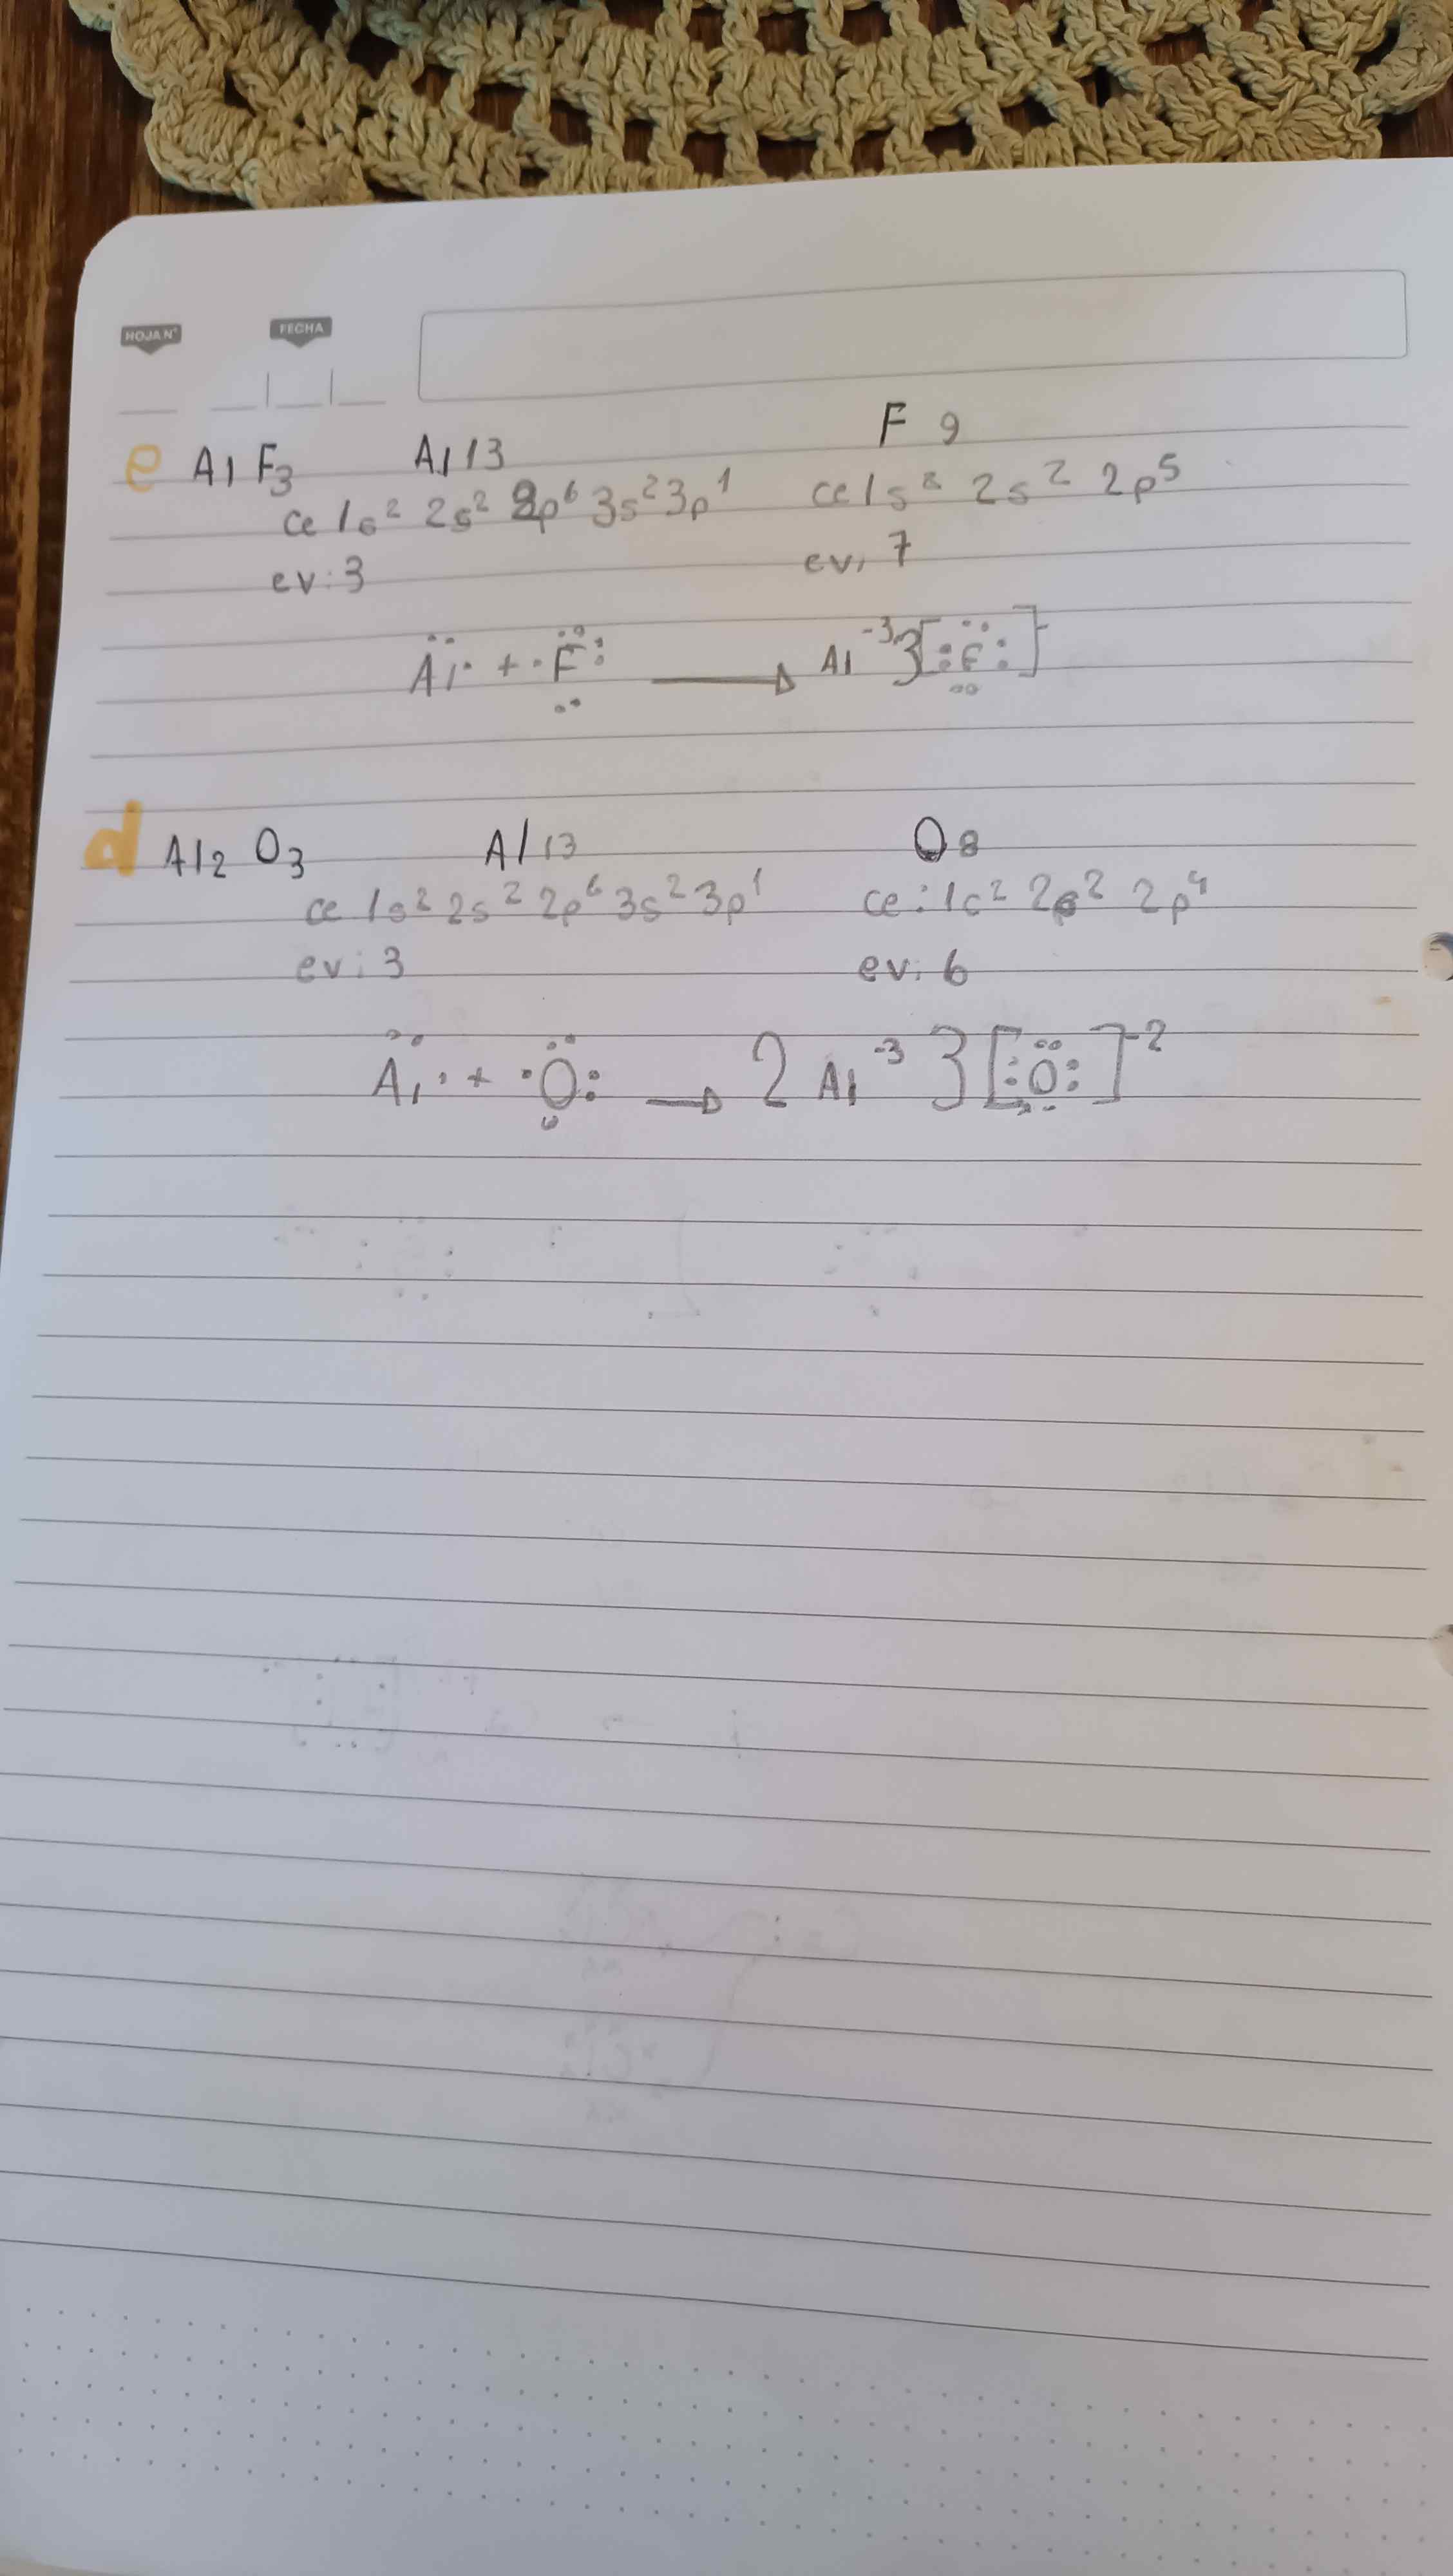 HOJA N° FECHA
e AlF₃ Al 13 F 9
ce 1s² 2s² 2p⁶ 3s² 3p¹ ce 1s² 2s² 2p⁵
ev: 3 ev: 7
Al + F → Al⁻³ 3[F]⁻
d Al₂O₃ Al 13 O 8
ce 1s² 2s² 2p⁶ 3s² 3p¹ ce: 1s² 2s² 2p⁴
ev: 3 ev: 6
Al + O → 2Al⁻³ 3[O]⁻²